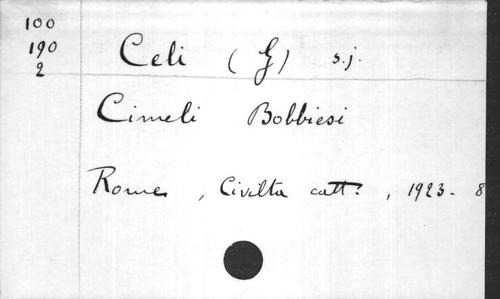 100
190
2
Celi (G) s.j.
Cimeli Bobbiesi
Rome, Civilta catt., 1923. 8